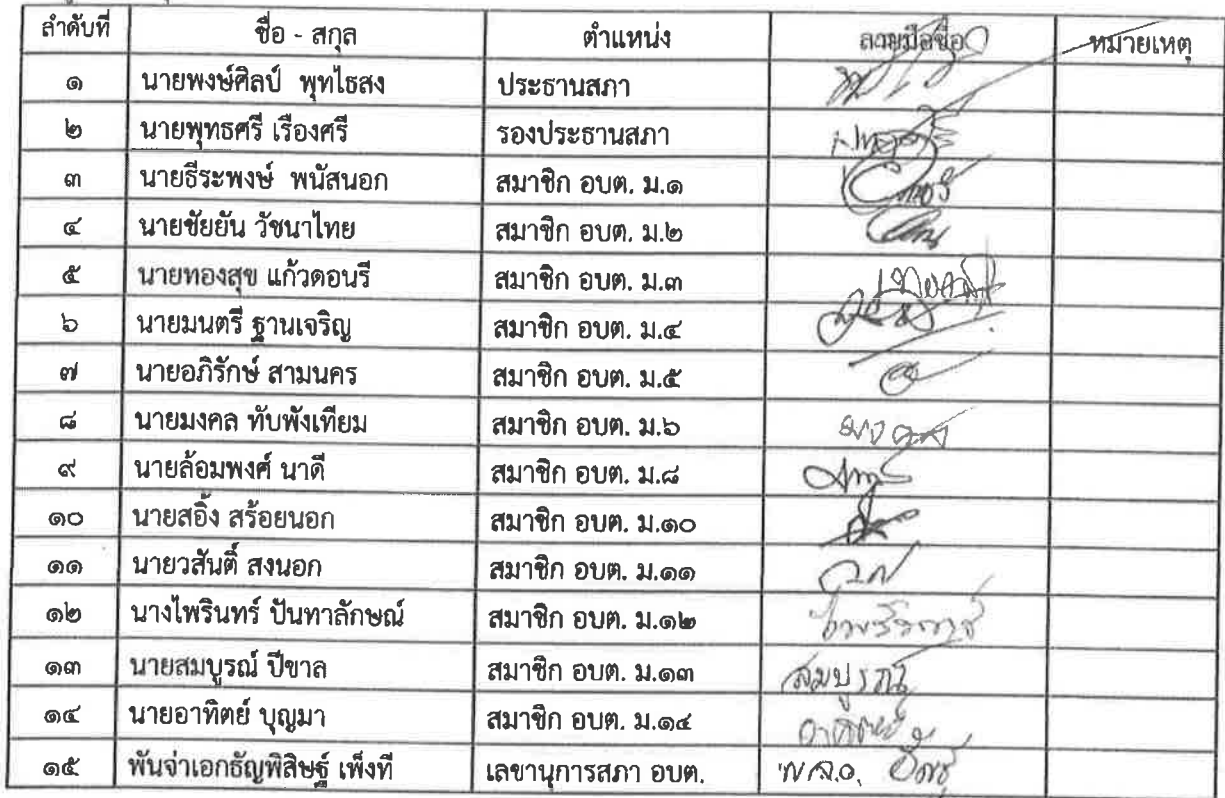 ลำดับที่ ชื่อ - สกุล ตำแหน่ง ลายมือชื่อ หมายเหตุ
๑ นายพงษ์ศิลป์ พุทไธสง ประธานสภา
๒ นายพุทธศรี เรืองศรี รองประธานสภา
๓ นายธีระพงษ์ พนัสนอก สมาชิก อบต. ม.๑
๔ นายชัยยัน วัชนาไทย สมาชิก อบต. ม.๒
๕ นายทองสุข แก้วดอนรี สมาชิก อบต. ม.๓
๖ นายมนตรี ฐานเจริญ สมาชิก อบต. ม.๔
๗ นายอภิรักษ์ สามนคร สมาชิก อบต. ม.๕
๘ นายมงคล ทับพังเทียม สมาชิก อบต. ม.๖ มงคล
๙ นายล้อมพงศ์ นาดี สมาชิก อบต. ม.๘
๑๐ นายสอิ้ง สร้อยนอก สมาชิก อบต. ม.๑๐
๑๑ นายวสันติ์ สงนอก สมาชิก อบต. ม.๑๑
๑๒ นางไพรินทร์ ปันทาลักษณ์ สมาชิก อบต. ม.๑๒
๑๓ นายสมบูรณ์ ปีขาล สมาชิก อบต. ม.๑๓ สมบูรณ์
๑๔ นายอาทิตย์ บุญมา สมาชิก อบต. ม.๑๔ อาทิตย์
๑๕ พันจ่าเอกธัญพิสิษฐ์ เพ็งที เลขานุการสภา อบต. พ.จ.อ.